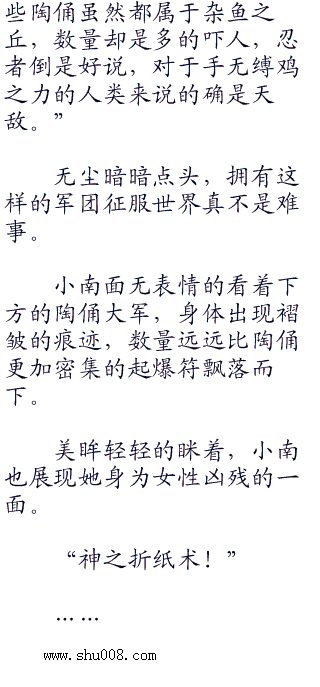 些陶俑虽然都属于杂鱼之
丘，数量却是多的吓人，忍
者倒是好说，对于手无缚鸡
之力的人类来说的确是天
敌。”
无尘暗暗点头，拥有这
样的军团征服世界真不是难
事。
小南面无表情的看着下
方的陶俑大军，身体出现褶
皱的痕迹，数量远远比陶俑
更加密集的起爆符飘落而
下。
美眸轻轻的眯着，小南
也展现她身为女性凶残的一
面。
“神之折纸术！”
……
www.shu008.com